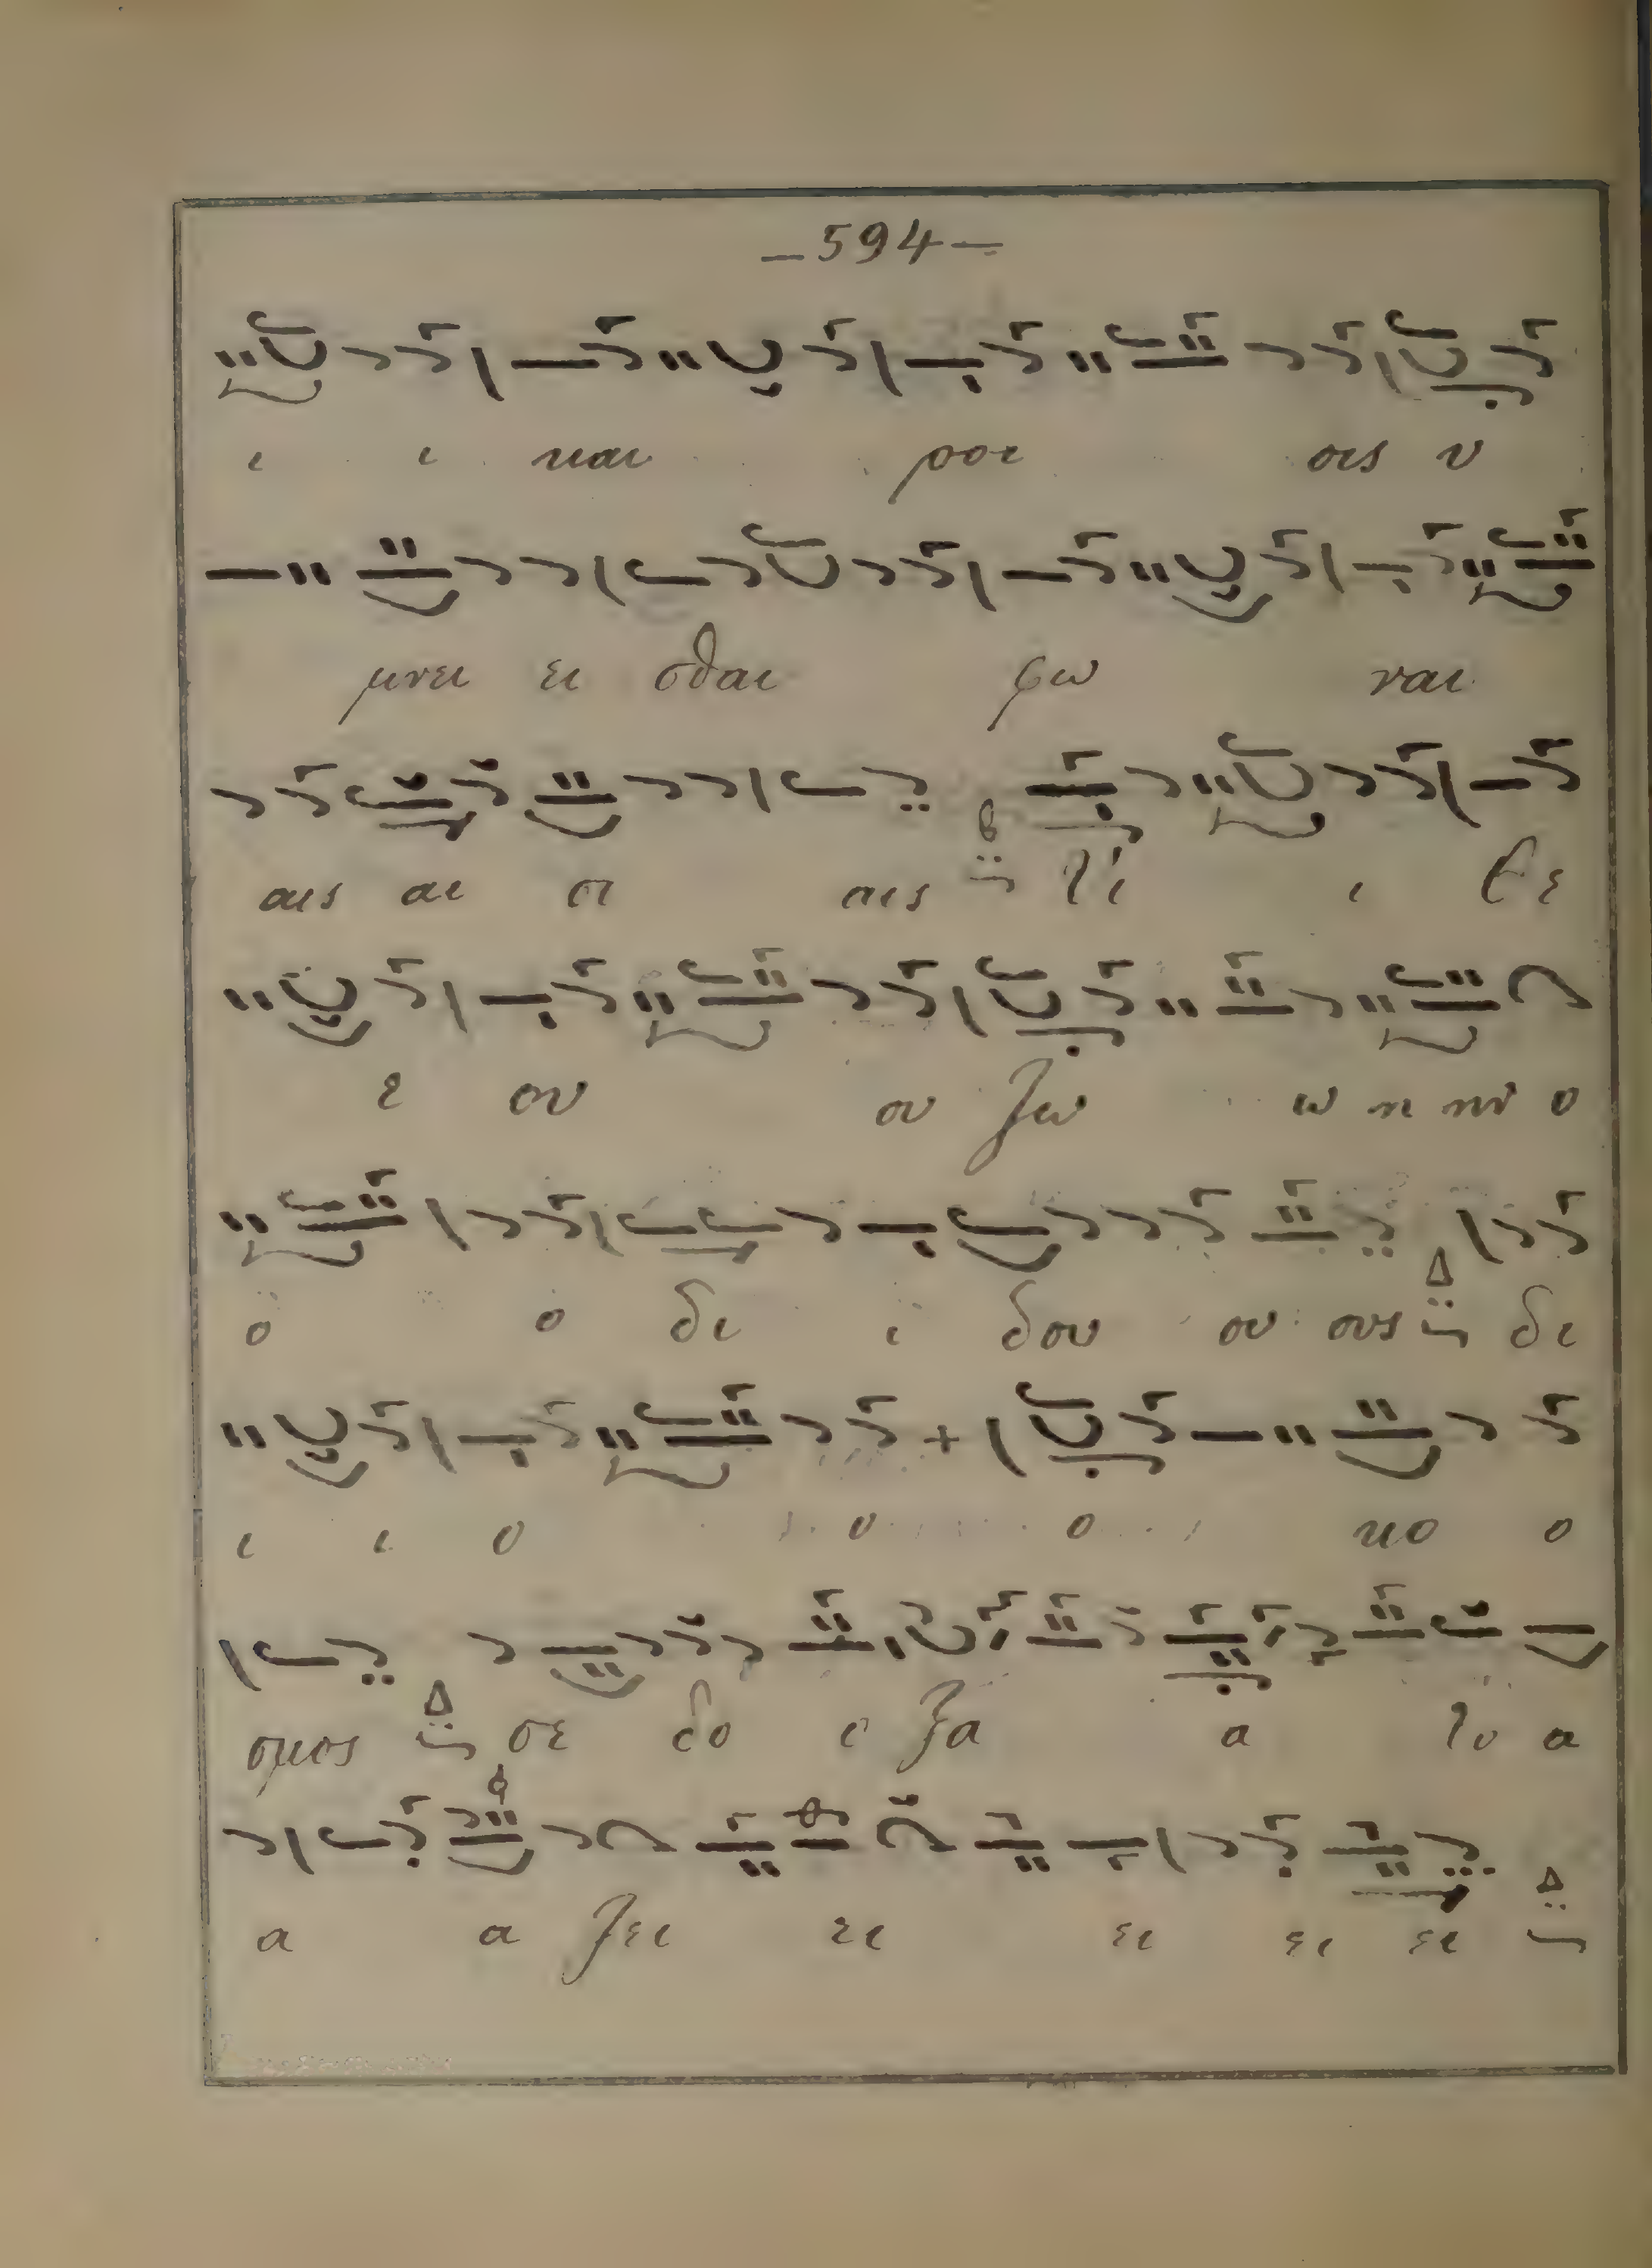 —594—
ι ι και ροι οις υ
μνει ει σθαι φω ναι
αις αι σι αις Υι ι Θε
ε ου ου ζω η ην ο
ο ο δι ι δου ου ους δι
ι ι ο ο ο κο ο
σμος σε δο ο ξα α
α α ζει ει ει ει ει